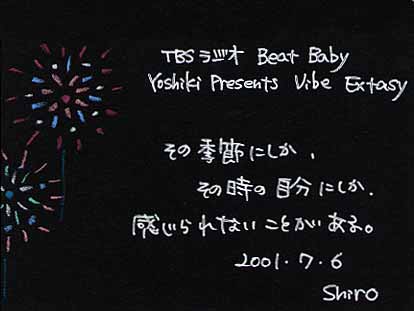 TBSラジオ Beat Baby
Yoshiki Presents Vibe Extasy
その季節にしか、
その時の自分にしか、
感じられないことがある。
2001.7.6
Shiro